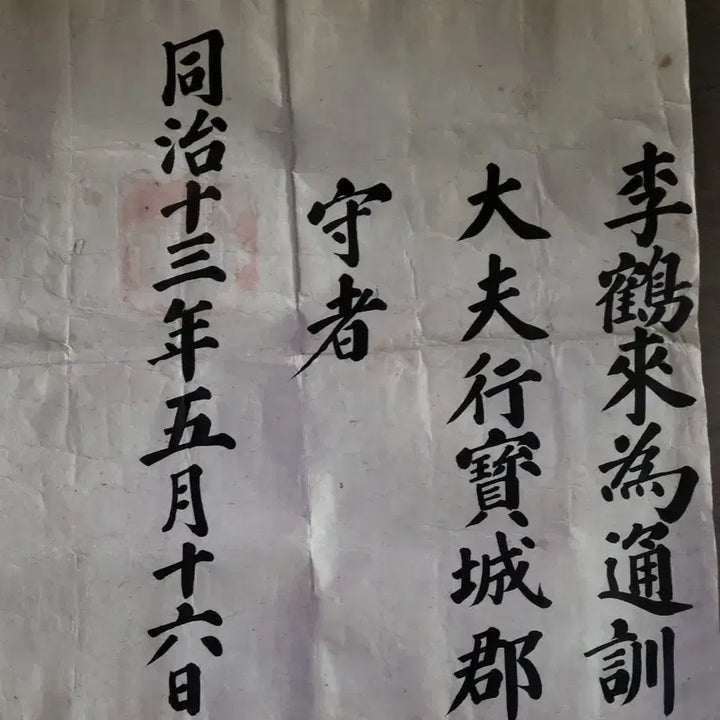 李鶴來為通訓
大夫行寶城郡
守者
同治十三年五月十六日